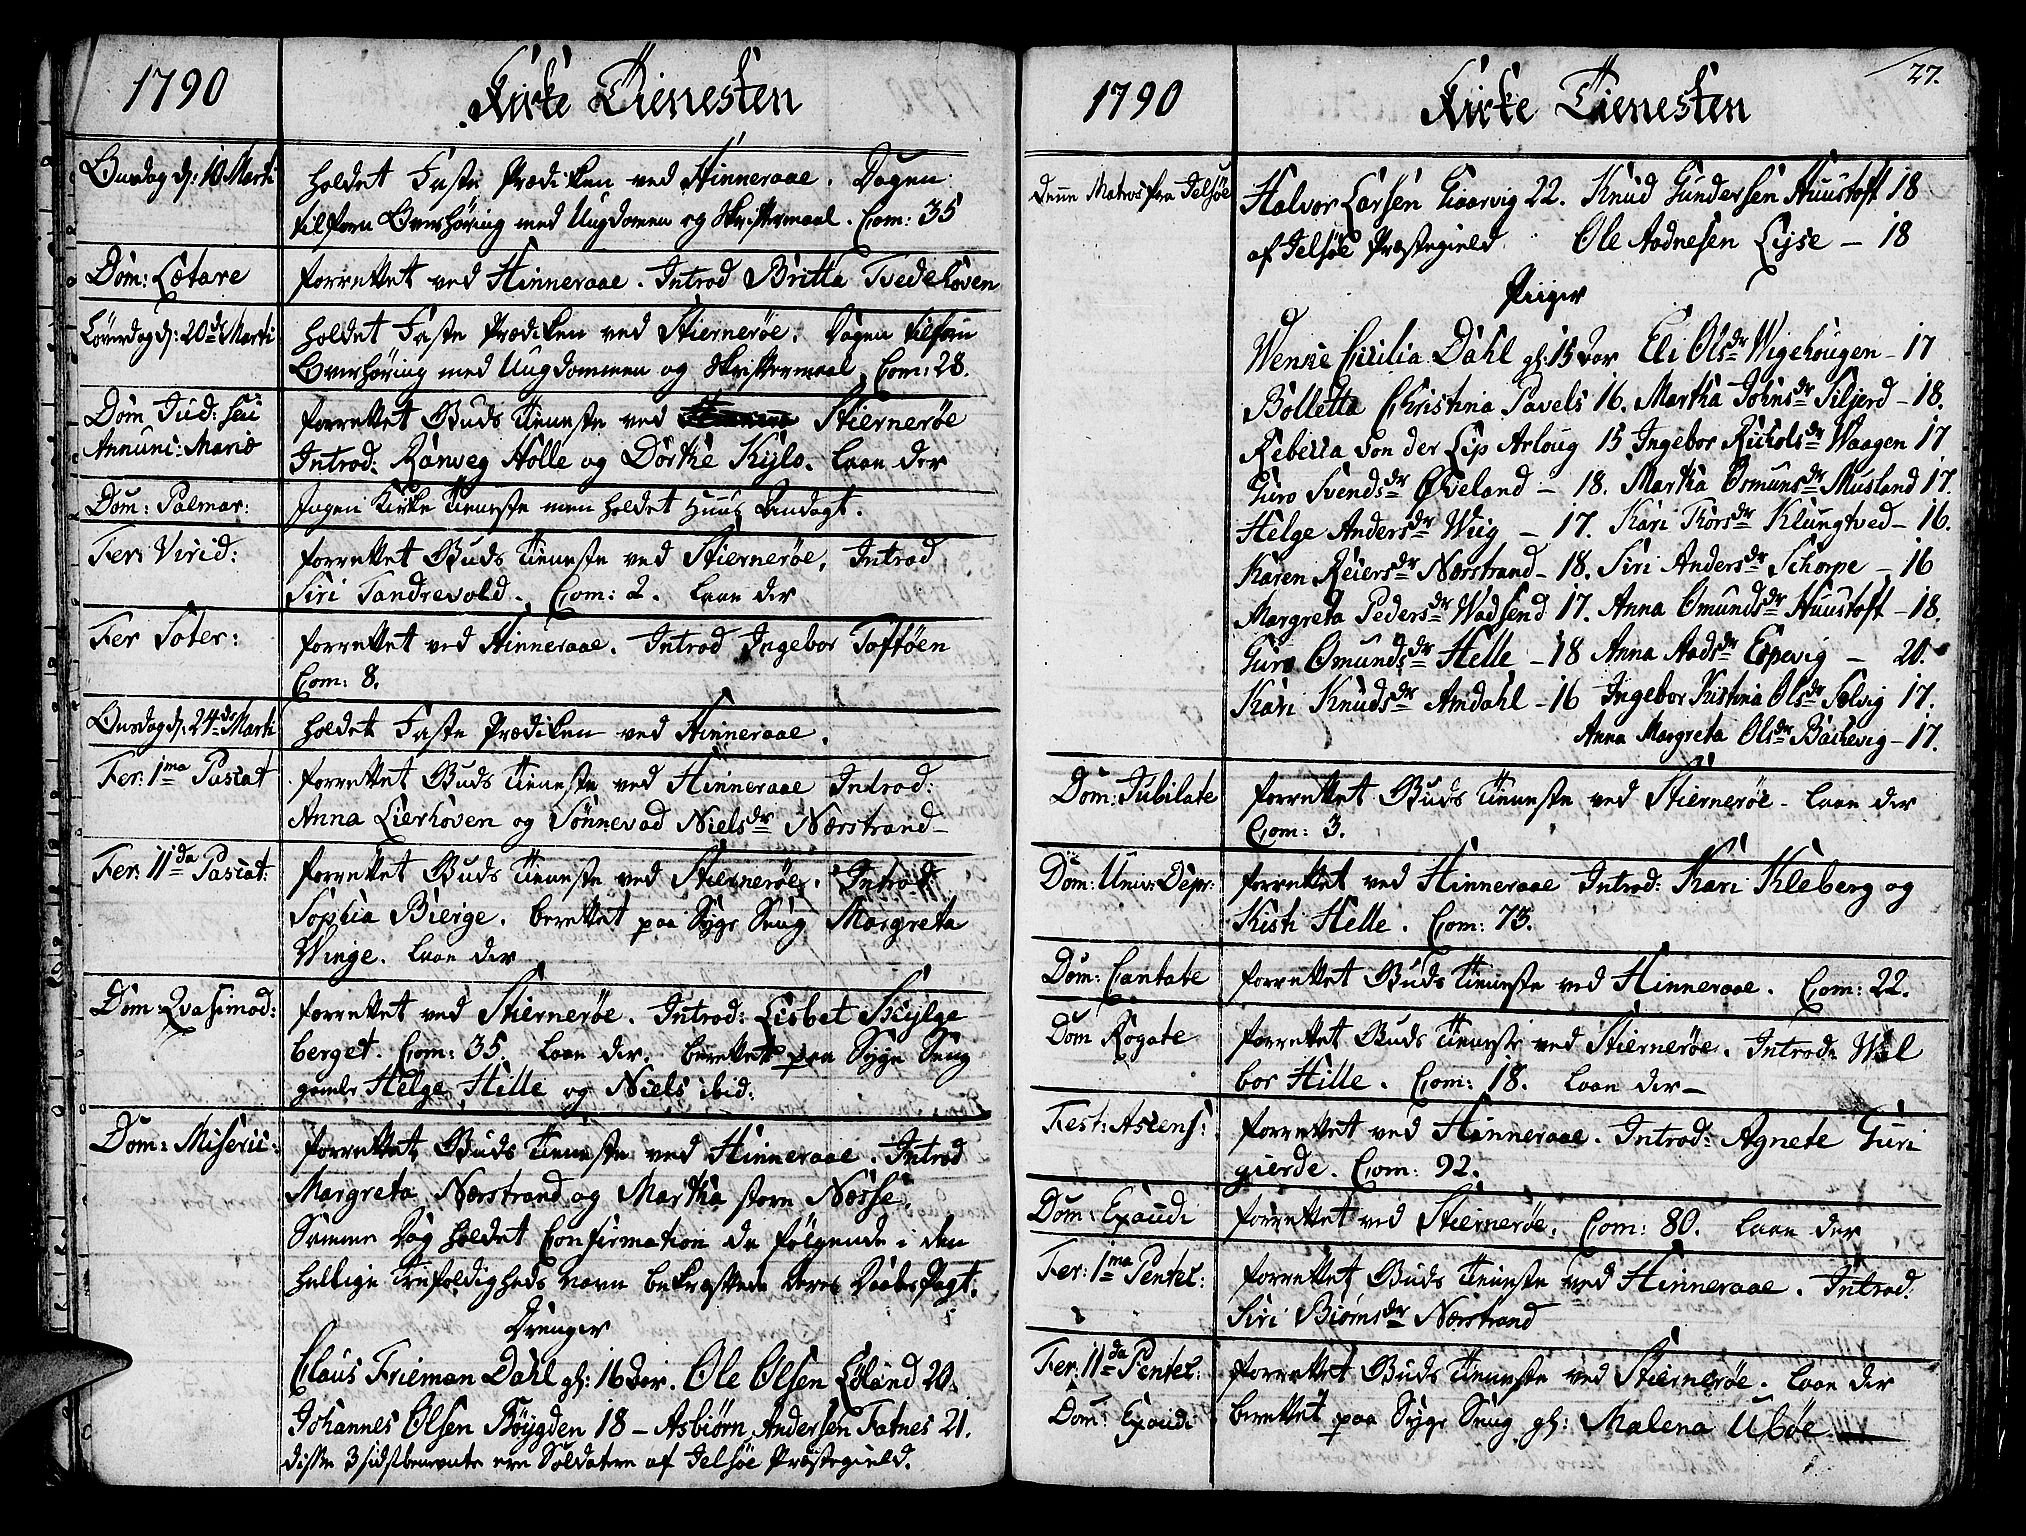 1790
Kirke Tienesten
Onsdag d: 10 Marti
holdet Faste Prædiken ved Hinneraae. Dagen
tilforn Overhøring med Ungdomen og Skriftermaal. Com: 35
Dom: Lætare
forrettet ved Hinneraae. Introd Britta Tvedehoven
Løverdag d: 20de Marti
holdet Faste Prædiken ved Stiernerøe. Dagen tilforn
Overhøring med Ungdommen og Skriftermaal. Com: 28.
Dom Jud: seu
Annunc: Mariæ
forrettet Guds Tieneste ved Stiernerøe
Introd: Ranveg Holle og Dorthe Kylo. laae der
Dom: Palmar:
Ingen Kirke Tieneste men holdet Huus Andagt.
Fer: Virid:
forrettet Guds Tieneste ved Stiernerøe. Introd
Siri Tandrevold. Com: 2. laae der
Fer Soter:
forrettet ved Hinneraae. Introd Ingebor Toftøen
Com: 8.
Onsdag d: 24de Marti
holdet Faste Prædiken ved Hinneraae.
Fer: 1ma Pascat
forrettet Guds Tieneste ved Hinneraae Introd:
Anna Lierhoven og Sønnevad Nielsdr Nærstrand
Fer: 11da Pascat:
forrettet Guds Tieneste ved Stiernerøe. Introd
Sophia Bierge. berettet paa Syge Seng Margreta
Winge. laae der
Dom Qvasimod:
forrettet ved Stiernerøe. Introd: Lisbet Skylge
berget. Com: 35. laae der. berettet paa Syge Seng
gamle Helge Hille og Niels ibid:
Dom: Miseric:
forrettet Guds Tieneste ved Hinneraae. Introd
Margreta Nærstrand og Martha store Næsse.
Samme Dag holdet Confirmation da følgende i den
hellige Trefoldigheds Navn bekræftede deres Daabs Pagt.
Drenger
Claus Frieman Dahl gl: 16 Aar. Ole Olsen Eiland 20.
Johannes Olsen Bøygden 18 – Asbiørn Andersen Fatnes 21.
disse 3 sidstbenevnte ere Soldater af Jelsøe Præstegield.
27.
1790
Kirke Tienesten
Denne Matros fra Jelsøe
Halvor Larsen Giaarvig 22. Knud Gundersen Huustoft 18
af Jelsøe Præstegield Ole Aadnesen Lyse – 18
Piiger
Wencie Cicilia Dahl gl: 15 Aar Eli Olsdr Wigehougen – 17
Bolletta Christina Pavels 16. Martha Johnsdr Siljerd – 18.
Rebecca von der Lip Arloug 15 Ingebor Richolsdr Waagen 17
Guro Svendsdr Øveland – 18. Martha Osmunsdr Musland 17.
Helge Andersdr Wiig – 17. Kari Thorsdr Klungtved – 16.
Karen Reiersdr Nærstrand – 18. Siri Andersdr Schorpe – 16
Margreta Pedersdr Wadsend 17. Anna Omundsdr Huustoft – 18.
Guro Omundsdr Helle – 18 Anna Aadsdr Espevig – 20.
Kari Knudsdr Amdahl – 16 Ingebor Kistina Olsdr Solvig 17.
Anna Margreta Olsdr Backevig – 17.
Dom: Jubilate
forrettet Guds Tieneste ved Stiernerøe – laae der
Com: 3.
Dom: Univ: Depr:
forrettet ved Hinneraae Introd: Kari Kleberg og
Kisti Helle. Com: 73.
Dom: Cantate
forrettet Guds Tieneste ved Hinneraae. Com: 22.
Dom Rogate
forrettet Guds Tieneste ved Stiernerøe. Introd: Wal
bor Hille. Com: 18. laae der –
Fest: Ascens:
forrettet ved Hinneraae. Introd: Agnete Guri
gierde. Com: 92.
Dom: Exaudi
forrettet ved Stiernerøe. Com: 80. laae der
Fer: 1ma Pentec:
forrettet Guds Tieneste ved Hinneraae. Introd:
Siri Biørnsdr Nærstrand
Fer: 11da Pentec:
forrettet Guds Tieneste ved Stiernerøe. laae der
Dom: Exaudi
berettet paa Syge Seng gl: Malena Ubøe